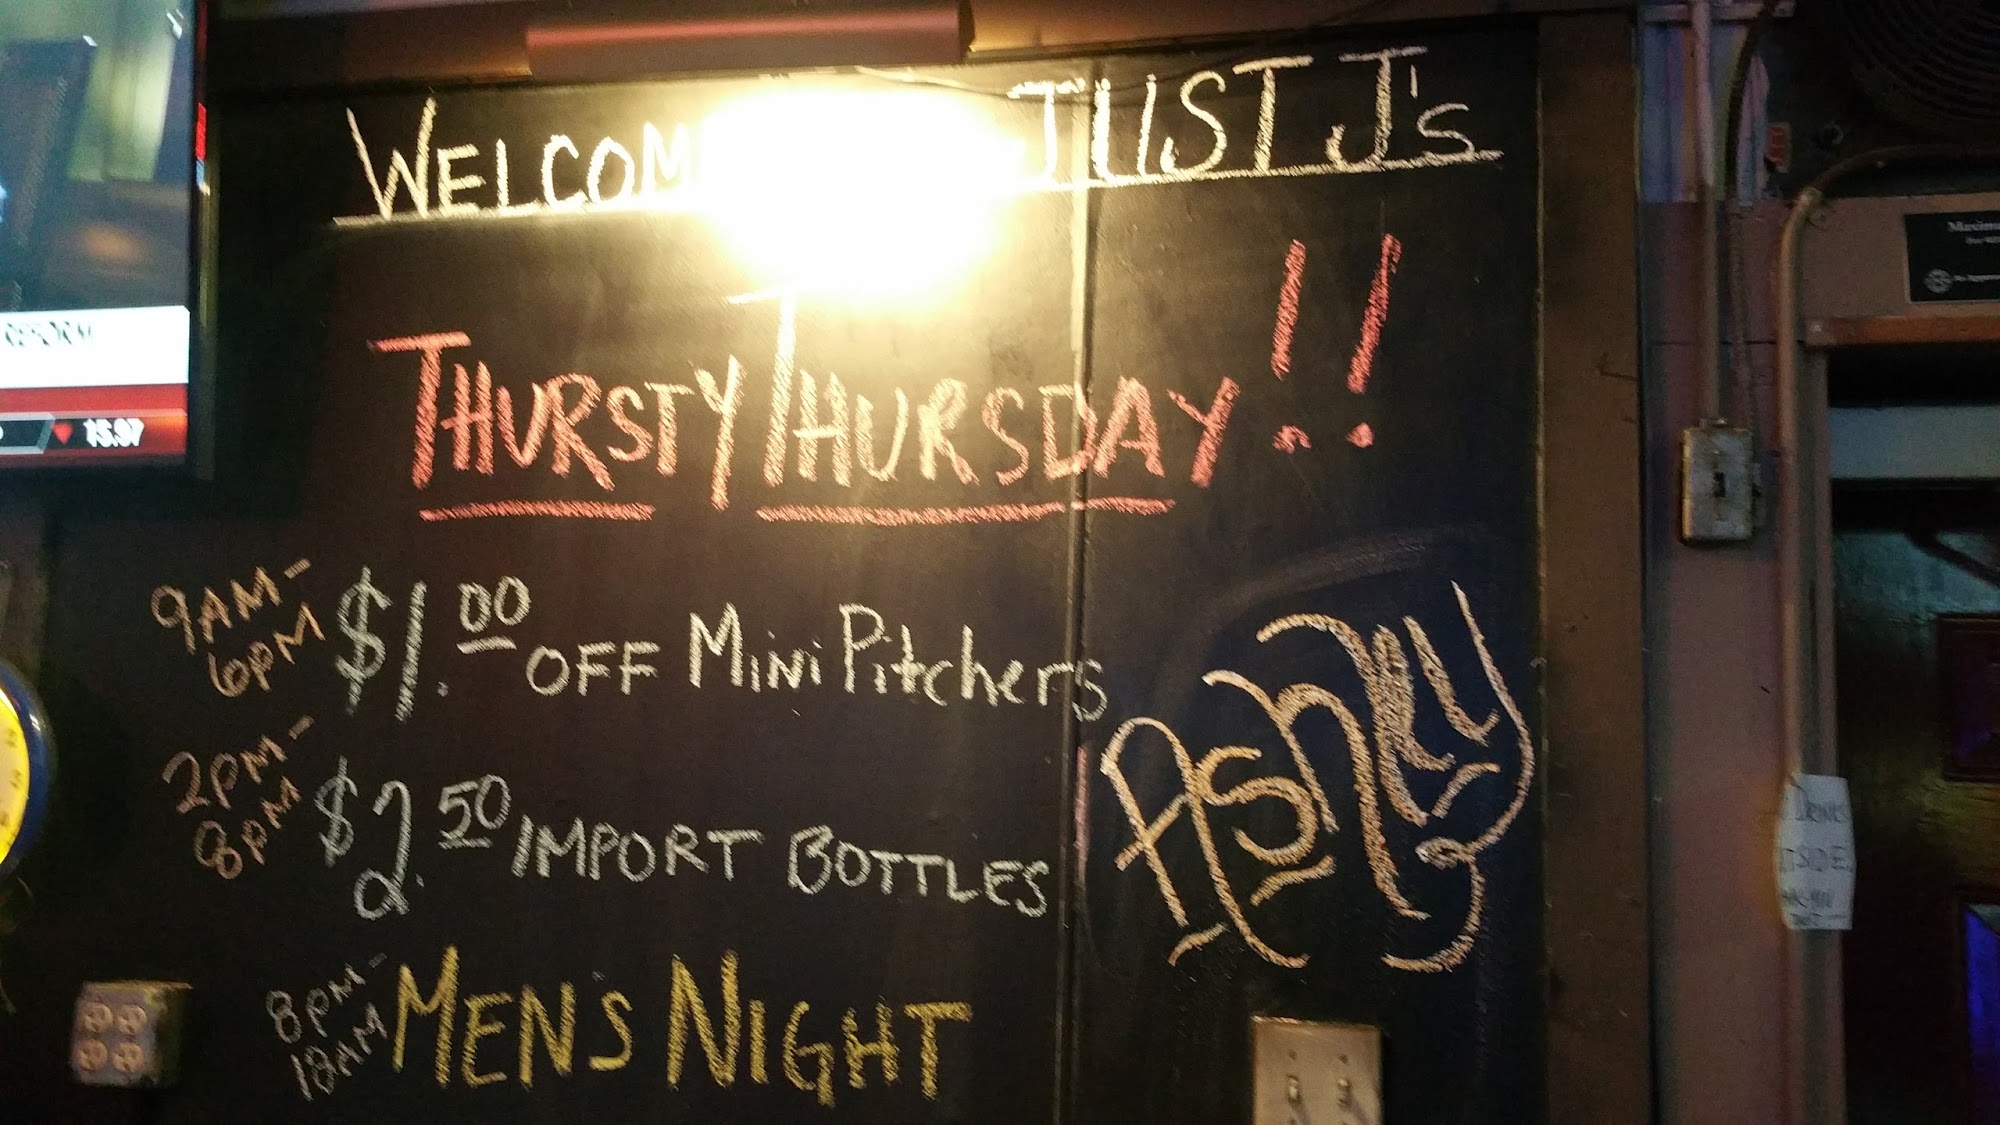 WELCOM JUST J's
THURSTY THURSDAY!!
9AM-
6PM
$1.00 OFF MiNi PitcherS
2PM-
8PM
$2.50 IMPORT BOTTLES
8PM-
MEN'S NIGHT
Ashley
15.97
DRINKS